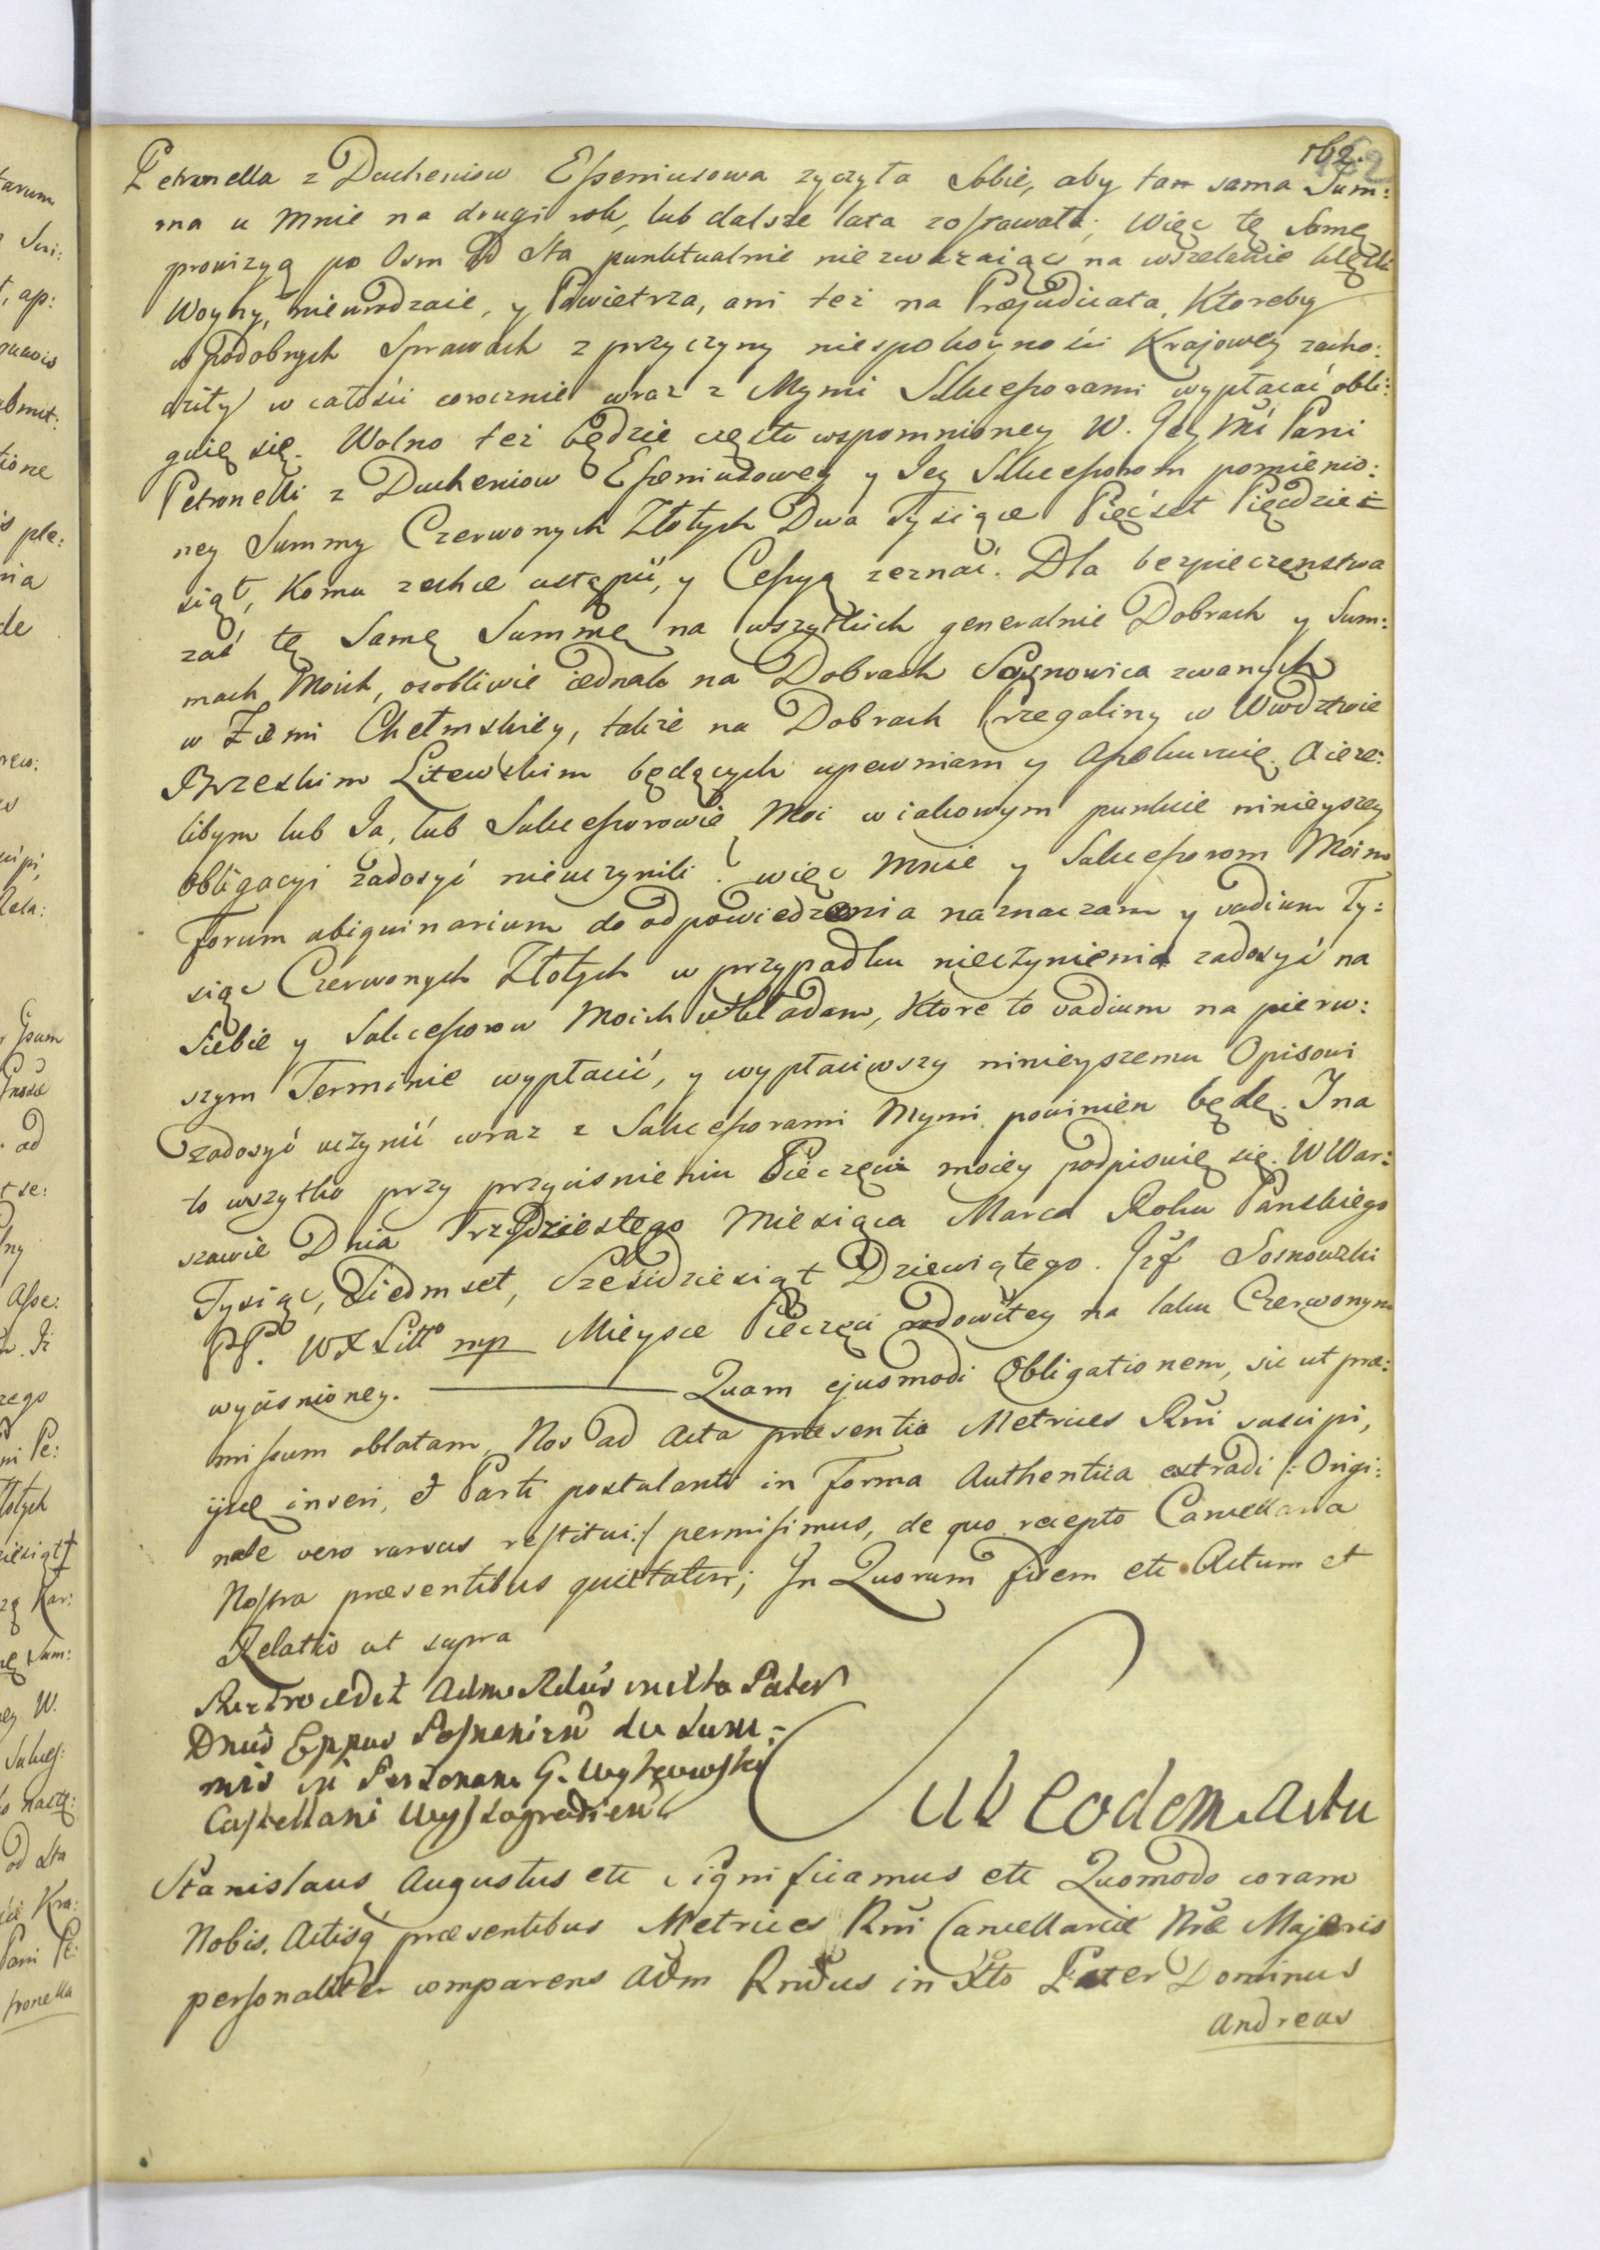 162.
Petronella z Ducheniow Esseniusowa zyczyła sobie, aby tam sama Sum:
ma u mnie na drugi rok, lub dalsze lata zostawała; Więc tę samę
prowizyą po Osm od sta punktualnie niezwazaiąc na wszelakie klęski
Woyny, nieurodzaie, y Powietrza, ani też na Præjudicata, Ktoreby
w podobnych Sprawach z przyczyny niespokoyności Krajowey zacho:
dziły w całości corocznie wraz z Mymi Sukcessorami wypłacać obli:
guię się. Wolno też będzie często wspomnioney W. Jey Mći Pani
Petronelli z Ducheniow Esseniusowey y Jey Sukcessorom pomienio:
ney Summy Czerwonych Złotych Dwa Tysiące Pięćset Pięcdzies
siąt, Komu zechce ustąpić, y Cessyą zeznać. Dla bezpieczenstwa
zaś tę Samę Summę na wszytkich generalnie Dobrach y Sum:
mach Moich, osobliwie iednak na Dobrach Sosnowica zwanych
w Ziemi Chełmskiey, także na Dobrach Przegaliny w Wwdztwie
Brzeskim Litewskim będących upewniam y Assekuruię. A ieze:
libym lub Ja, lub Sukcessorowie Moi w iakowym punkcie ninieyszey
obligacyi zadosyć nieuczynili: więc Mnie y Sukcessorom Moim
Forum ubiquinarium do odpowiedzenia naznaczam y vadium Ty:
siąc Czerwonych Złotych w przypadku nieczynienia zadosyć na
siebie y Sukcessorow Moich wkładam, Ktore to vadium na pierw:
szym Terminie wypłacić, y wypłaciwszy ninieyszemu Opisowi
zadosyć uczynić wraz z Sukcessorami Mymi powinien będę. I na
to wszytko przy przycisnieniu Pieczęci moiey podpisuię się. W War:
szawie Dnia Trzydziestego Miesiąca Marca Roku Panskiego
Tysiąc, Siedmset, Szescdziesiąt Dziewiątego. Jżf Sosnowski
PP. WXLitt mp Mieysce Pieczęci rodowitey na laku Czerwonym
wycisnioney. Quam ejusmodi Obligationem, sic ut præ:
missum oblatam, Nos ad Acta præsentia Metrices Rni suscipi,
ijsq inseri, et Parti postulanti in Forma Authentica extradi /: Origi:
nale vero rursus restitui :/ permisimus, de quo recepto Cancellaria
Nostra præsentibus quietatur; In Quorum fidem etc Actum et
Relatio ut supra
Retrocedit Admo Rdus in Xto Pater
Dnus Eppus Posnanien de Sum:
mis in Personam G. Wykowski
Castellani Wyszogrodien
Sub eodem Actu
Stanislaus Augustus etc Significamus etc Quomodo coram
Nobis, Actisq præsentibus Metrices Rni Cancellariæ Nræ Majoris
personaliter comparens Adm Rndus in Xto Pater Dominus
Andreas